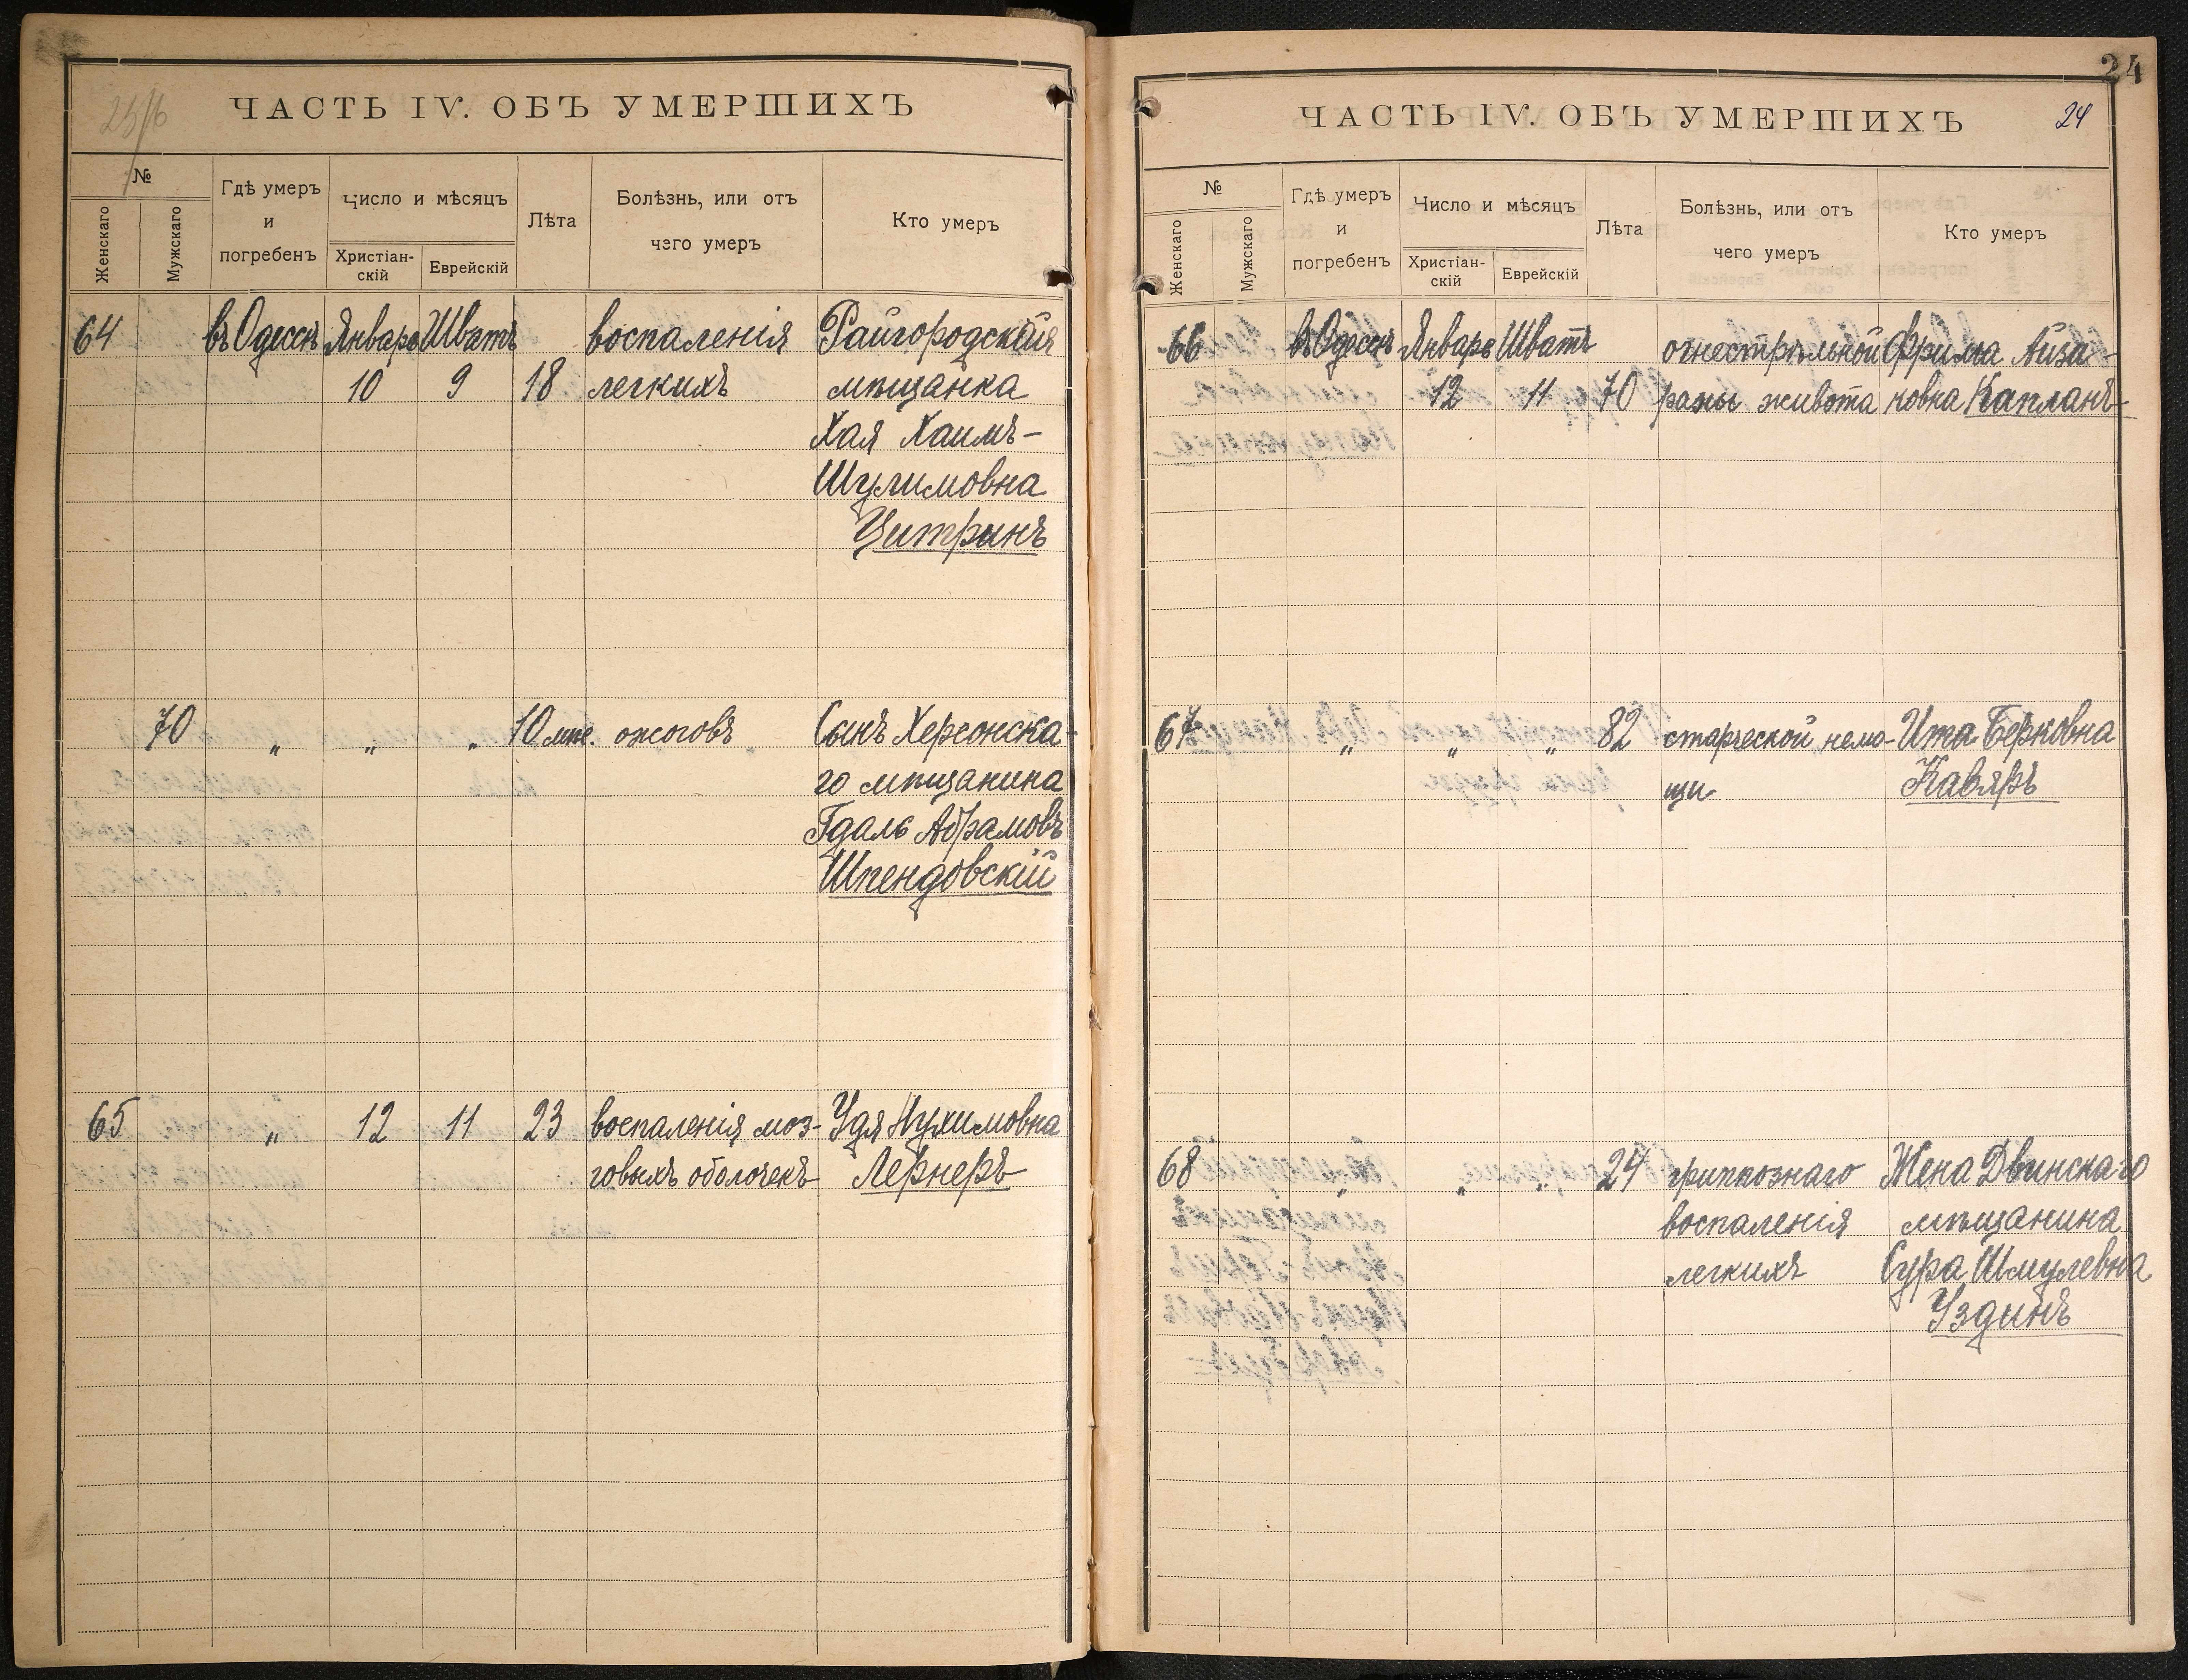 25/6
ЧАСТЬ IV. ОБЪ УМЕРШИХЪ
№
Женскаго
Мужскаго
Гдѣ умеръ
и
погребенъ
Число и мѣсяцъ
Христіан-
скій
Еврейскій
Лѣта
Болѣзнь, или отъ
чего умеръ
Кто умеръ
64 въ Одессѣ Январь Шватъ воспаленія Райгородская
10 9 18 легкихъ мѣщанка
Хая Хаимъ-
Шулимовна
Цитринъ
70 „ „ „ 10 мѣс. ожоговъ Сынъ Херсонска-
го мѣщанина
Гдаль Абрамовъ
Шпендовскій
65 „ 12 11 23 воспаленія моз- Удя Нухимовна
говыхъ оболочекъ Лернеръ
24
ЧАСТЬ IV. ОБЪ УМЕРШИХЪ 24
№
Женскаго
Мужскаго
Гдѣ умеръ
и
погребенъ
Число и мѣсяцъ
Христіан-
скій
Еврейскій
Лѣта
Болѣзнь, или отъ
чего умеръ
Кто умеръ
66 въ Одессѣ Январь Шватъ огнестрѣльной Фрима Айза-
12 11 70 раны живота ковна Капланъ
67 „ „ „ 82 старческой немо- Ита Берковна
щи Каваръ
68 „ „ „ 24 гриппознаго Жена Двинскаго
воспаленія мѣщанина
легкихъ Сура Шмулевна
Уздинъ